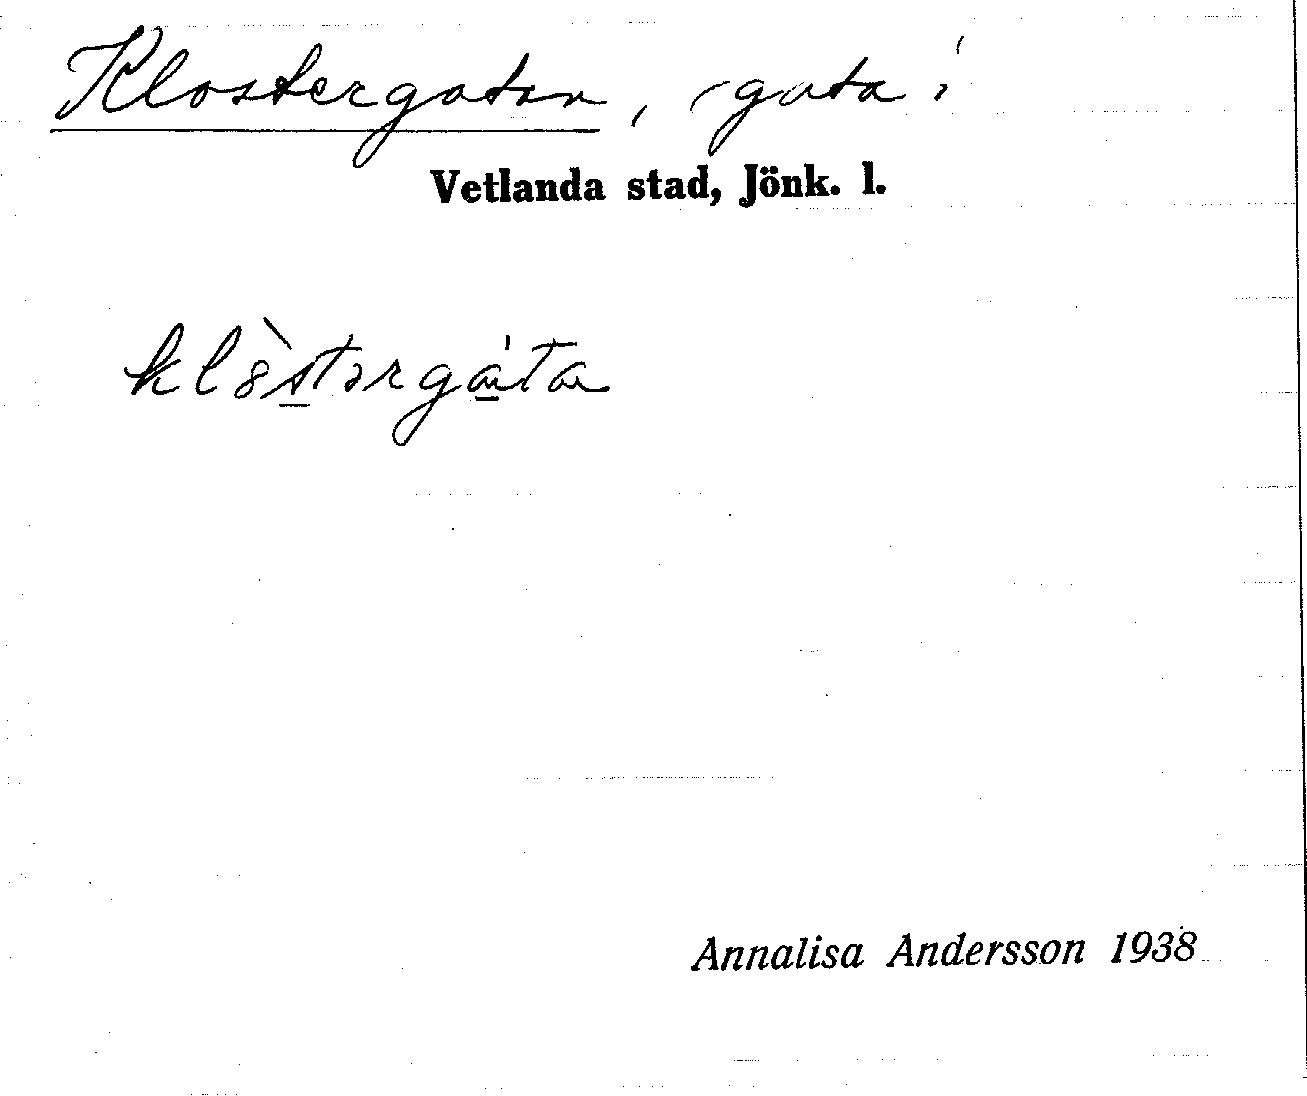 Klostergatan, gata i
Vetlanda stad, Jönk. l.
klòstərgáta
Annalisa Andersson 1938